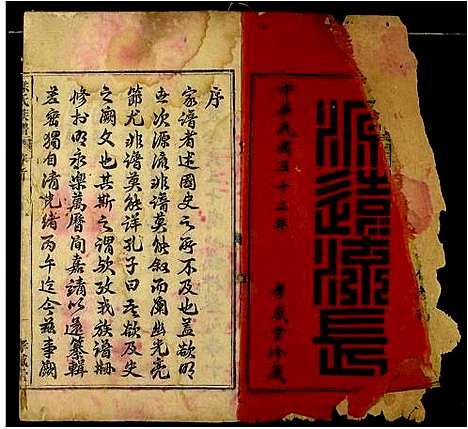 中華民國三十二年
源遠流長
孝感堂珍藏
序
家譜者述國史之所不及也蓋欲明
吾次源流非譜莫能叙而闡幽光亮
節尤非譜莫能詳孔子曰吾欲及史
之闕文也其斯之謂歟故我族譜册
修於明永樂萬曆間嘉靖以還纂輯
差密獨自清光緒丙午迄今茲事闕